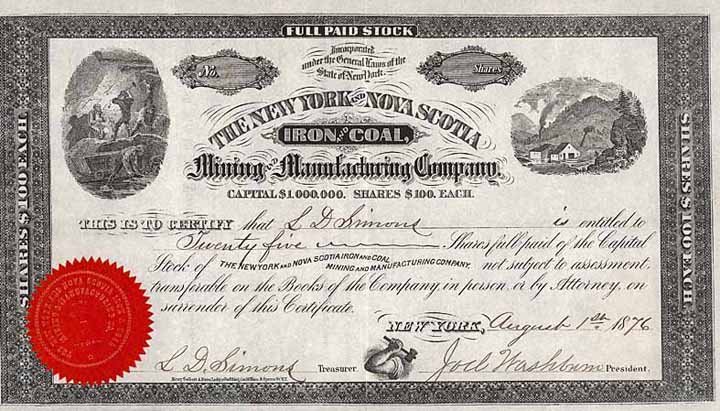 FULL PAID STOCK
No.
Incorporated
under the General Laws of the
State of New York.
Shares
THE NEW YORK AND NOVA SCOTIA
IRON AND COAL,
Mining AND Manufacturing Company.
CAPITAL $1.000.000. SHARES $100. EACH.
SHARES $100 EACH
SHARES $100 EACH.
THIS IS TO CERTIFY that L D Simons is entitled to
Twenty five Shares full paid of the Capital
Stock of THE NEW YORK AND NOVA SCOTIA IRON AND COAL MINING AND MANUFACTURING COMPANY, not subject to assessment,
transferable on the Books of the Company in person, or by Attorney, on
surrender of this Certificate.
NEW YORK, August 1st 1876
L. D. Simons Treasurer. Joel Washburn President.